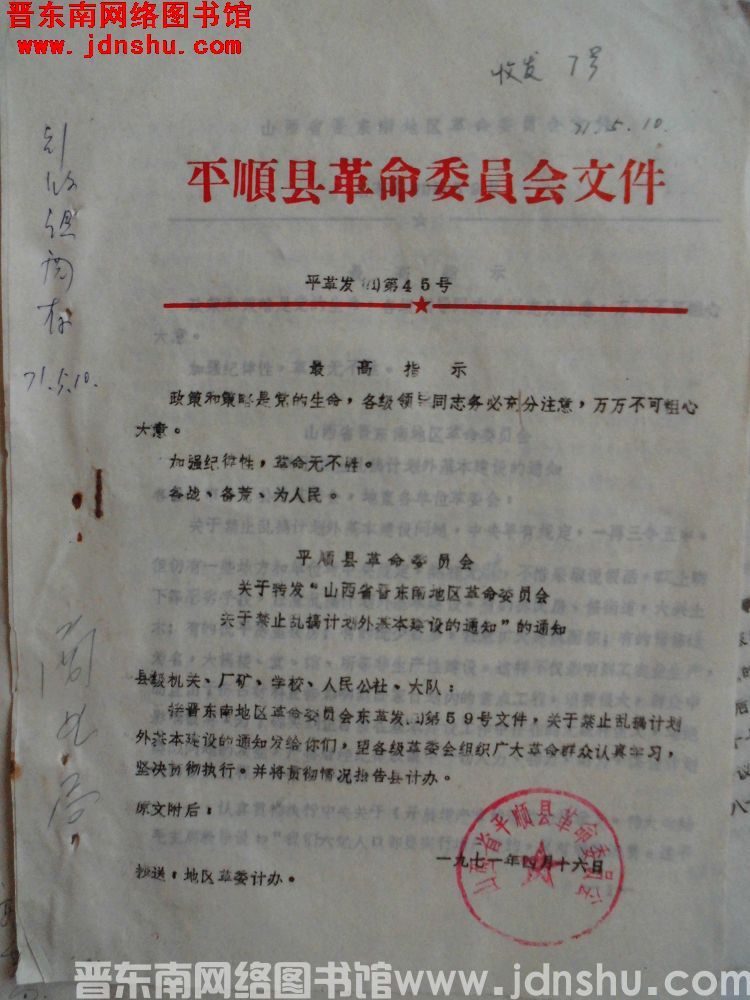 晋东南网络图书馆
www.jdnshu.com
收发 7号
71.5.10.
平順县革命委員会文件
平革发(71)第45号
最高指示
政策和策略是党的生命，各级领导同志务必充分注意，万万不可粗心
大意。
加强纪律性，革命无不胜。
备战、备荒、为人民。
平顺县革命委员会
关于转发“山西省晋东南地区革命委员会
关于禁止乱搞计划外基本建设的通知”的通知
县级机关、厂矿、学校、人民公社、大队：
接晋东南地区革命委员会东革发(71)第59号文件，关于禁止乱搞计划
外基本建设的通知发给你们，望各级革委会组织广大革命群众认真学习，
坚决贯彻执行。并将贯彻情况报告县计办。
原文附后：
一九七一年四月十六日
山西省平顺县革命委员会
抄送：地区革委计办。
71.5.10.
晋东南网络图书馆www.jdnshu.com